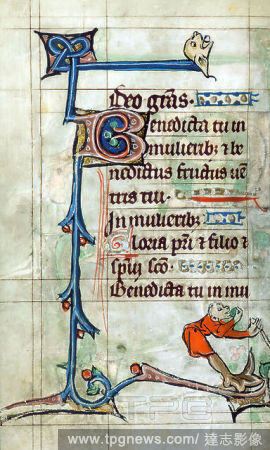 Deo gras.
Benedicta tu in
mulierib; & be
nedictus fructus uen
tris tui.
In mulierib;
Gloria pri & filio &
spui sco.
Benedicta tu in mu
TPG
www.tpgnews.com/ 達志影像